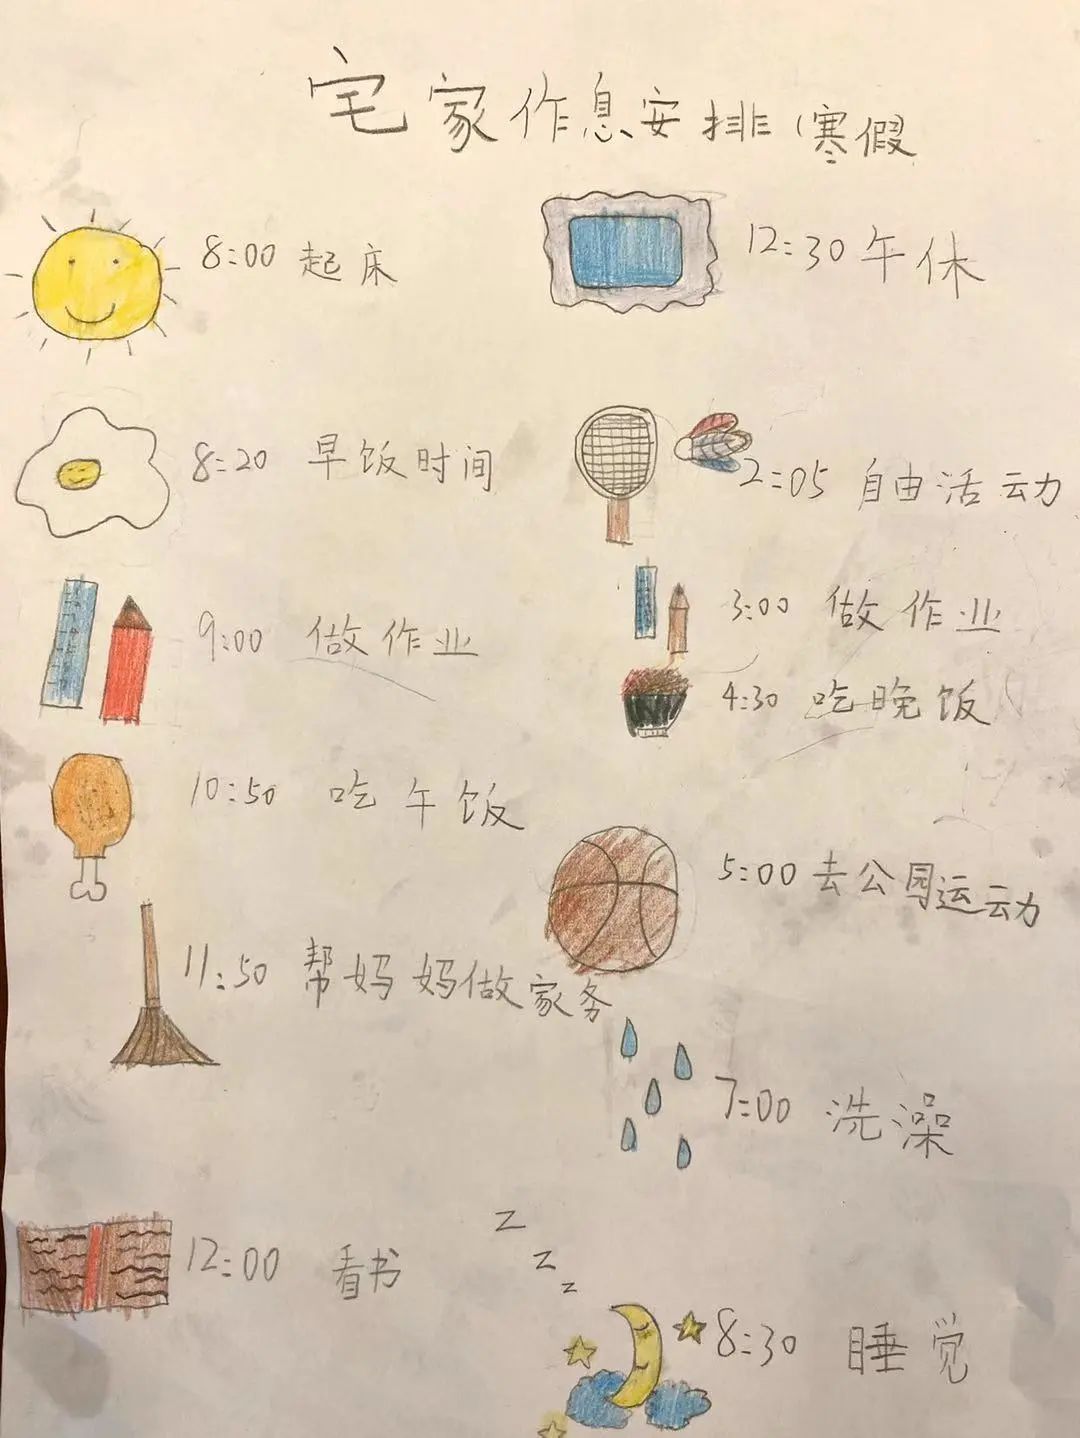 宅家作息安排(寒假
8:00 起床
8:20 早饭时间
9:00 做作业
10:50 吃午饭
11:50 帮妈妈做家务
12:00 看书
12:30 午休
2:05 自由活动
3:00 做作业
4:30 吃晚饭
5:00 去公园运动
7:00 洗澡
z
z
z
8:30 睡觉